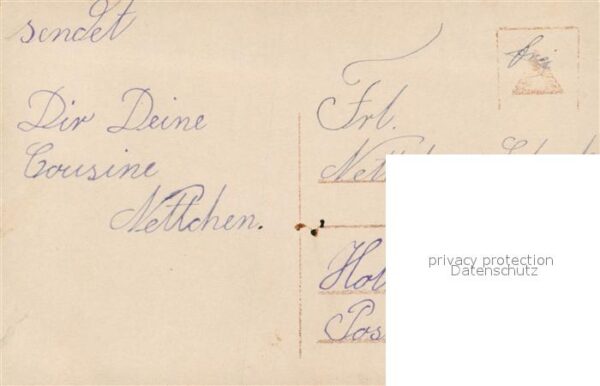 sendet
Dir Deine
Cousine
Nettchen.
frei
Frl.
privacy protection
Datenschutz